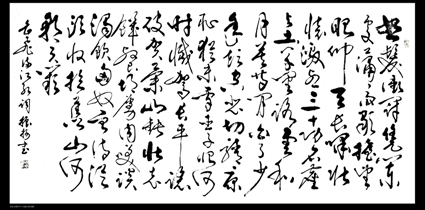 怒髮衝冠憑闌
處瀟瀟雨歇抬望
眼仰天長嘯壯
懷激烈三十功名塵
與土八千里路雲和
月莫等閒白了少
年頭空悲切靖康
恥猶未雪臣子恨何
時滅駕長車踏
破賀蘭山缺壯志
飢餐胡虜肉笑談
渴飲匈奴血待從
頭收拾舊山河
朝天闕
岳飛滿江紅詞 書